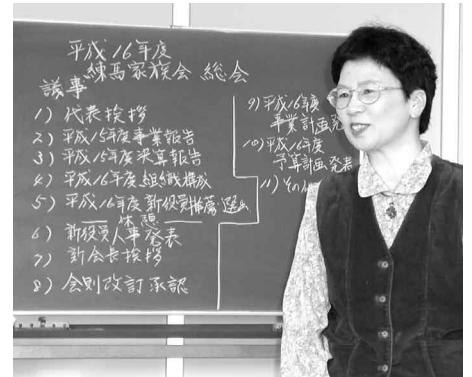 平成16年度
練馬家族会 総会
議事
1) 代表挨拶
2) 平成15年度事業報告
3) 平成15年度決算報告
4) 平成16年度組織構成
5) 平成16年度新役員推薦・選出
休憩
6) 新役員人事発表
7) 新会長挨拶
8) 会則改訂承認
9) 平成16年度
事業計画発
10) 平成16年度
予算計画発表
11) その